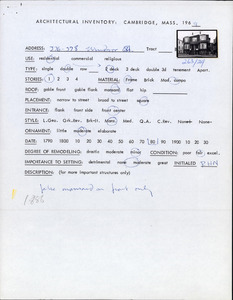 ARCHITECTURAL INVENTORY: CAMBRIDGE, MASS, 196
ADDRESS: Windsor Tract
263/29
USE: residential commercial religious
TYPE: single double row 2 deck 3 deck double 3d tenement Apart.
STORIES: 1 2 3 4 5 MATERIAL: Frame Brick Mad. compo
ROOF: gable front gable flank mansard flat hip
PLACEMENT: narrow to street broad to street square
ENTRANCE: flank side front center front side
STYLE: L.Geo. Grk.Rev. Brk-It. Mans. Med. Q.A. C.Rev. None
ORNATION: little moderate elaborate
DATE: 1790 1810 20 30 40 50 60 70 80 90 1900
DEGREE OF REMODELING: drastic moderate minor CONDITION: poor fair excel.
IMPORTANCE TO SETTING: detrimental none moderate great INITIALED
DESCRIPTION: (for more important structures only)
false mansard on front only
1886